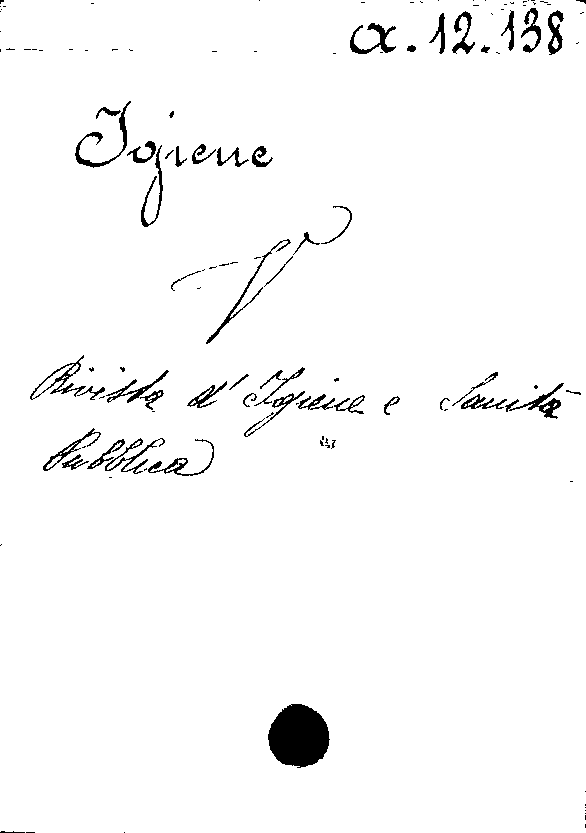 α.12.138
Igiene
V
Rivista d' Igiene e Sanità
Pubblica